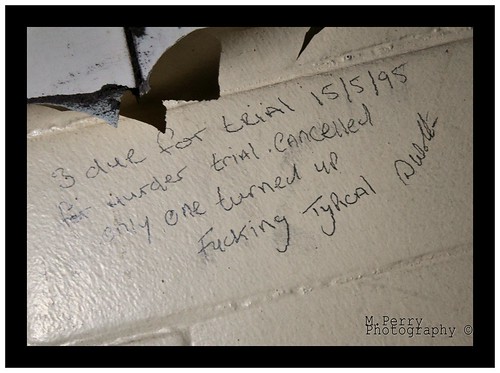 3 due for trial 15/5/95
for murder trial. Cancelled
only one turned up
Fucking Typical
M.Perry
Photography ©